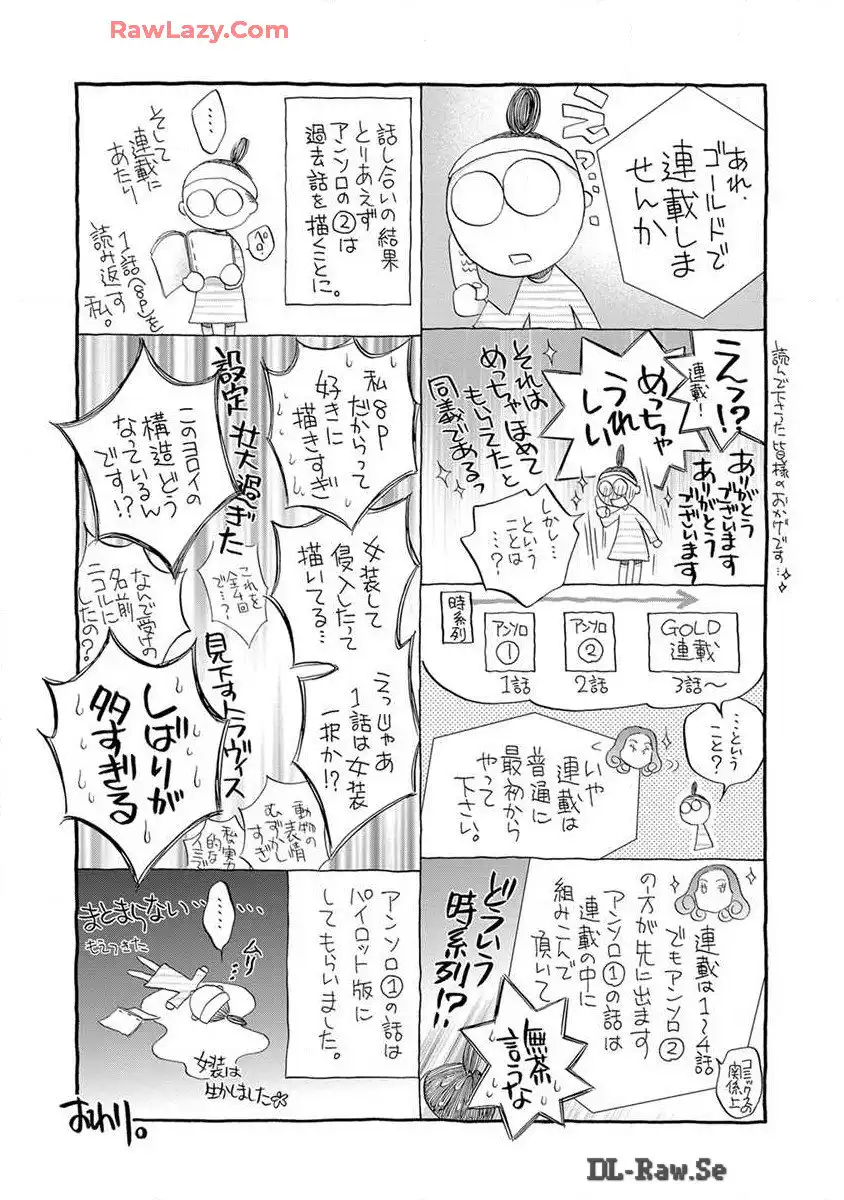 RawLazy.Com
あれ、
ゴールドで
連載しま
せんか
えっ!?
連載!
めっちゃ
うれ
しい
ありがとう
ございます
ありがとう
ございます
それは
めっちゃほめて
もらってたと
同義であるっ
しかし…
という
ことは
…?
読んで下さった皆様のおかげです…
時系列
アンソロ
①
1話
アンソロ
②
2話
GOLD
連載
3話～
…という
こと?
いや
連載は
普通に
最初から
やって
下さい。
連載は1～4話
でもアンソロ②
の方が先に出ます
アンソロ①の話は
連載の中に
組みこんで
頂いて
コミックスの
関係上
どういう
時系列!?
無茶
言うな
話し合いの結果
とりあえず
アンソロの②は
過去話を描くことに。
…
そして
連載に
あたり
1話(8P)を
読み返す
私。
私8P
だからって
好きに
描きすぎ
設定壮大過ぎた
このヨロイの
構造どう
なっているん
です!?
女装して
侵入したって
描いてる…
これを
全4回
で…?
なんで受けの
名前
ニコルに
したの?
えっじゃあ
1話は女装
一択か!?
見下すトラヴィス
しばりが
多すぎる
動物の
表情
むずかし
すぎ
私実力
的な
イミで
アンソロ①の話は
パイロット版に
してもらいました。
まとまらない…
……
もえつきた
ムリ
女装は
生かしました
おわり。
DL-Raw.Se